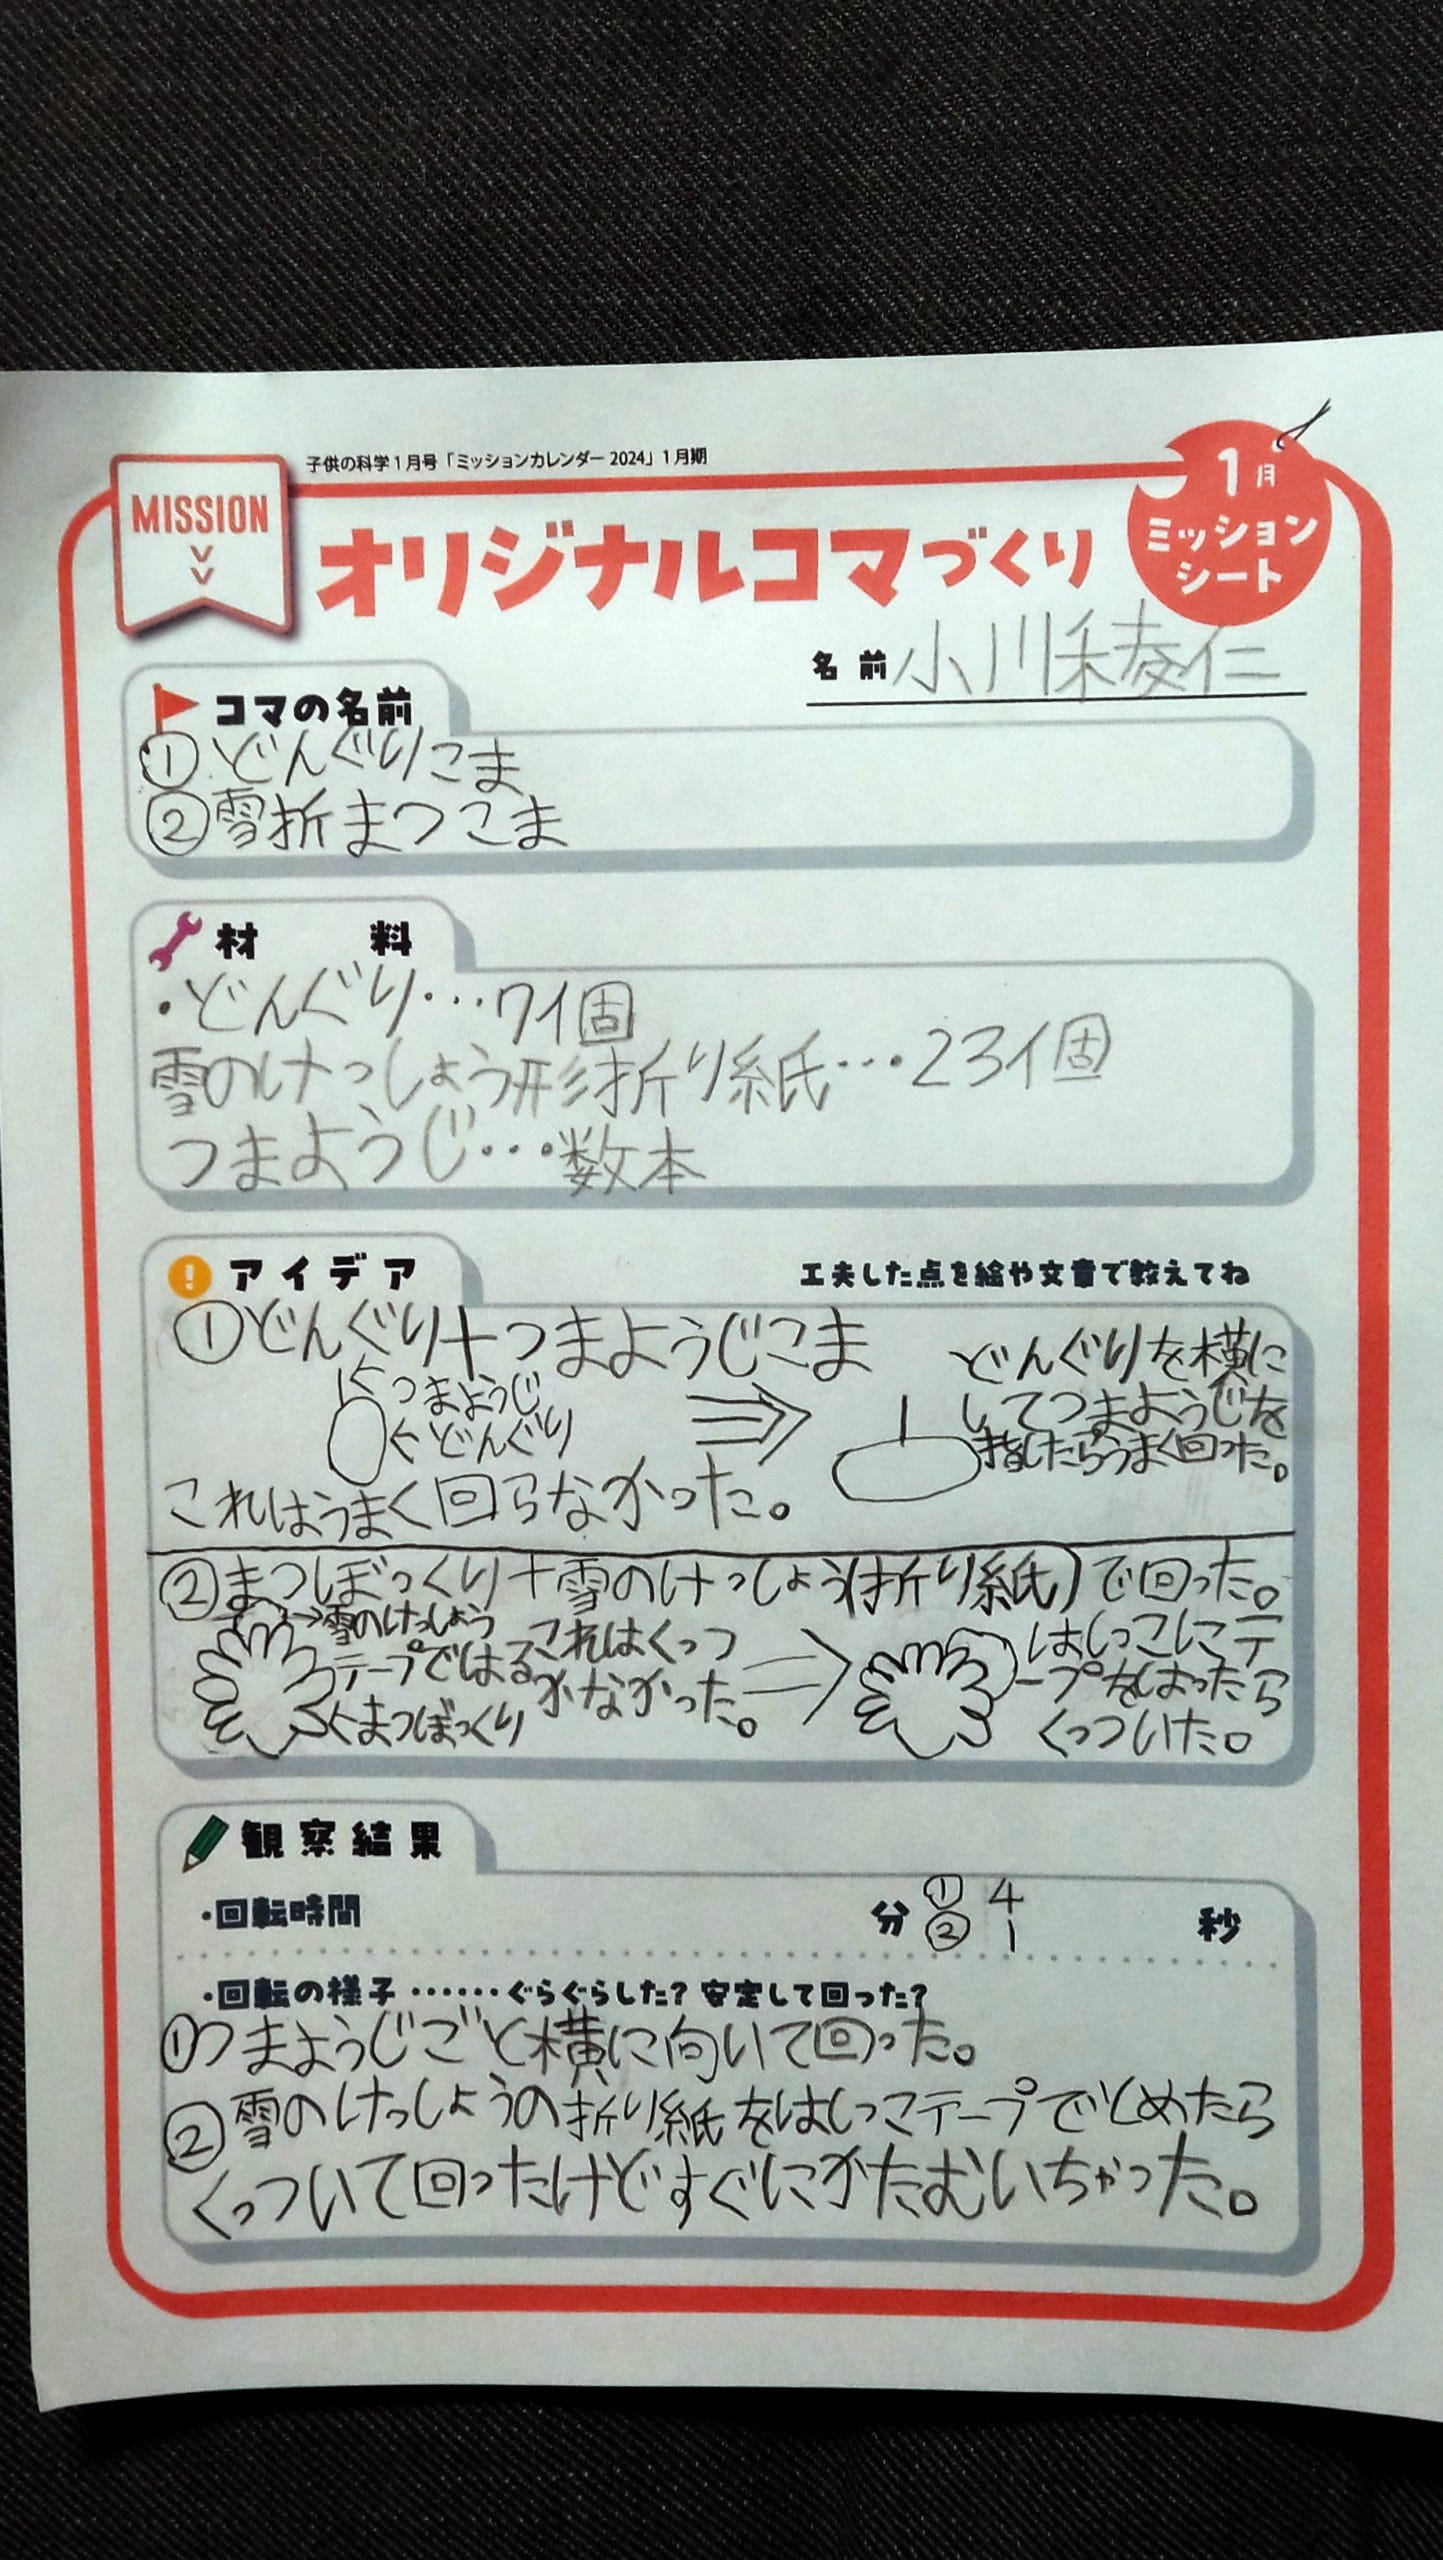 子供の科学1月号「ミッションカレンダー2024」1月期
MISSION
オリジナルコマづくり
1月
ミッション
シート
名前 小川稜仁
コマの名前
①どんぐりこま
②雪折まつこま
材料
・どんぐり…7個
雪のけっしょう形折り紙…23個
つまようじ…数本
アイデア
工夫した点を絵や文章で教えてね
①どんぐり+つまようじこま
←つまようじ
←どんぐり
これはうまく回らなかった。
どんぐりを横に
してつまようじを
指したらうまく回った。
②まつぼっくり+雪のけっしょう(折り紙)で回った。
→雪のけっしょう
テープではる
←まつぼっくり
これはくっつ
かなかった。
はしっこにテ
ープをはったら
くっついた。
観察結果
・回転時間 分 ①4 ②1 秒
・回転の様子……ぐらぐらした?安定して回った?
①つまようじごと横に向いて回った。
②雪のけっしょうの折り紙をはしっこテープでとめたら
くっついて回ったけどすぐにかたむいちゃった。